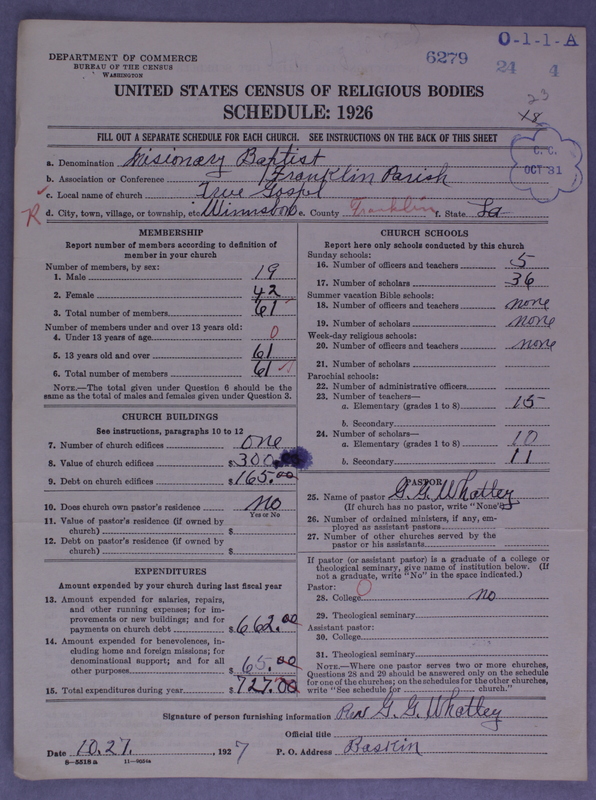 DEPARTMENT OF COMMERCE
BUREAU OF THE CENSUS
WASHINGTON
6279
O-1-1-A
24 4
UNITED STATES CENSUS OF RELIGIOUS BODIES
SCHEDULE: 1926
23
FILL OUT A SEPARATE SCHEDULE FOR EACH CHURCH. SEE INSTRUCTIONS ON THE BACK OF THIS SHEET
C. C.
OCT 31
a. Denomination Misionary Baptist
b. Association or Conference Franklin Parish
c. Local name of church True Gospel
R d. City, town, village, or township, etc. Winnsboro e. County Franklin f. State La
MEMBERSHIP
Report number of members according to definition of
member in your church
Number of members, by sex:
1. Male 19
2. Female 42
3. Total number of members 61
Number of members under and over 13 years old:
4. Under 13 years of age 0
5. 13 years old and over 61
6. Total number of members 61
NOTE.—The total given under Question 6 should be
the same as the total of males and females given under Question 3.
CHURCH BUILDINGS
See instructions, paragraphs 10 to 12
7. Number of church edifices one
8. Value of church edifices $300.00
9. Debt on church edifices $165.00
10. Does church own pastor's residence no
Yes or No
11. Value of pastor's residence (if owned by
church) $
12. Debt on pastor's residence (if owned by
church) $
EXPENDITURES
Amount expended by your church during last fiscal year
13. Amount expended for salaries, repairs,
and other running expenses; for im-
provements or new buildings; and for
payments on church debt $662.00
14. Amount expended for benevolences, in-
cluding home and foreign missions; for
denominational support; and for all
other purposes 65.00
15. Total expenditures during year $727.00
CHURCH SCHOOLS
Report here only schools conducted by this church
Sunday schools:
16. Number of officers and teachers 5
17. Number of scholars 36
Summer vacation Bible schools:
18. Number of officers and teachers none
19. Number of scholars none
Week-day religious schools:
20. Number of officers and teachers none
21. Number of scholars
Parochial schools:
22. Number of administrative officers
23. Number of teachers—
a. Elementary (grades 1 to 8) 15
b. Secondary
24. Number of scholars—
a. Elementary (grades 1 to 8) 10
b. Secondary 11
PASTOR
25. Name of pastor G. G. Whatley
(If church has no pastor, write "None")
26. Number of ordained ministers, if any, em-
ployed as assistant pastors
27. Number of other churches served by the
pastor or his assistants
If pastor (or assistant pastor) is a graduate of a college or
theological seminary, give name of institution below. (If
not a graduate, write "No" in the space indicated.)
Pastor:
28. College 0 no
29. Theological seminary
Assistant pastor:
30. College
31. Theological seminary
NOTE.—Where one pastor serves two or more churches,
Questions 28 and 29 should be answered only on the schedule
for one of the churches; on the schedules for the other churches,
write "See schedule for church."
Signature of person furnishing information Rev G. G. Whatley
Official title
Date 10.27. , 1927 P. O. Address Baskin
8-5518 a